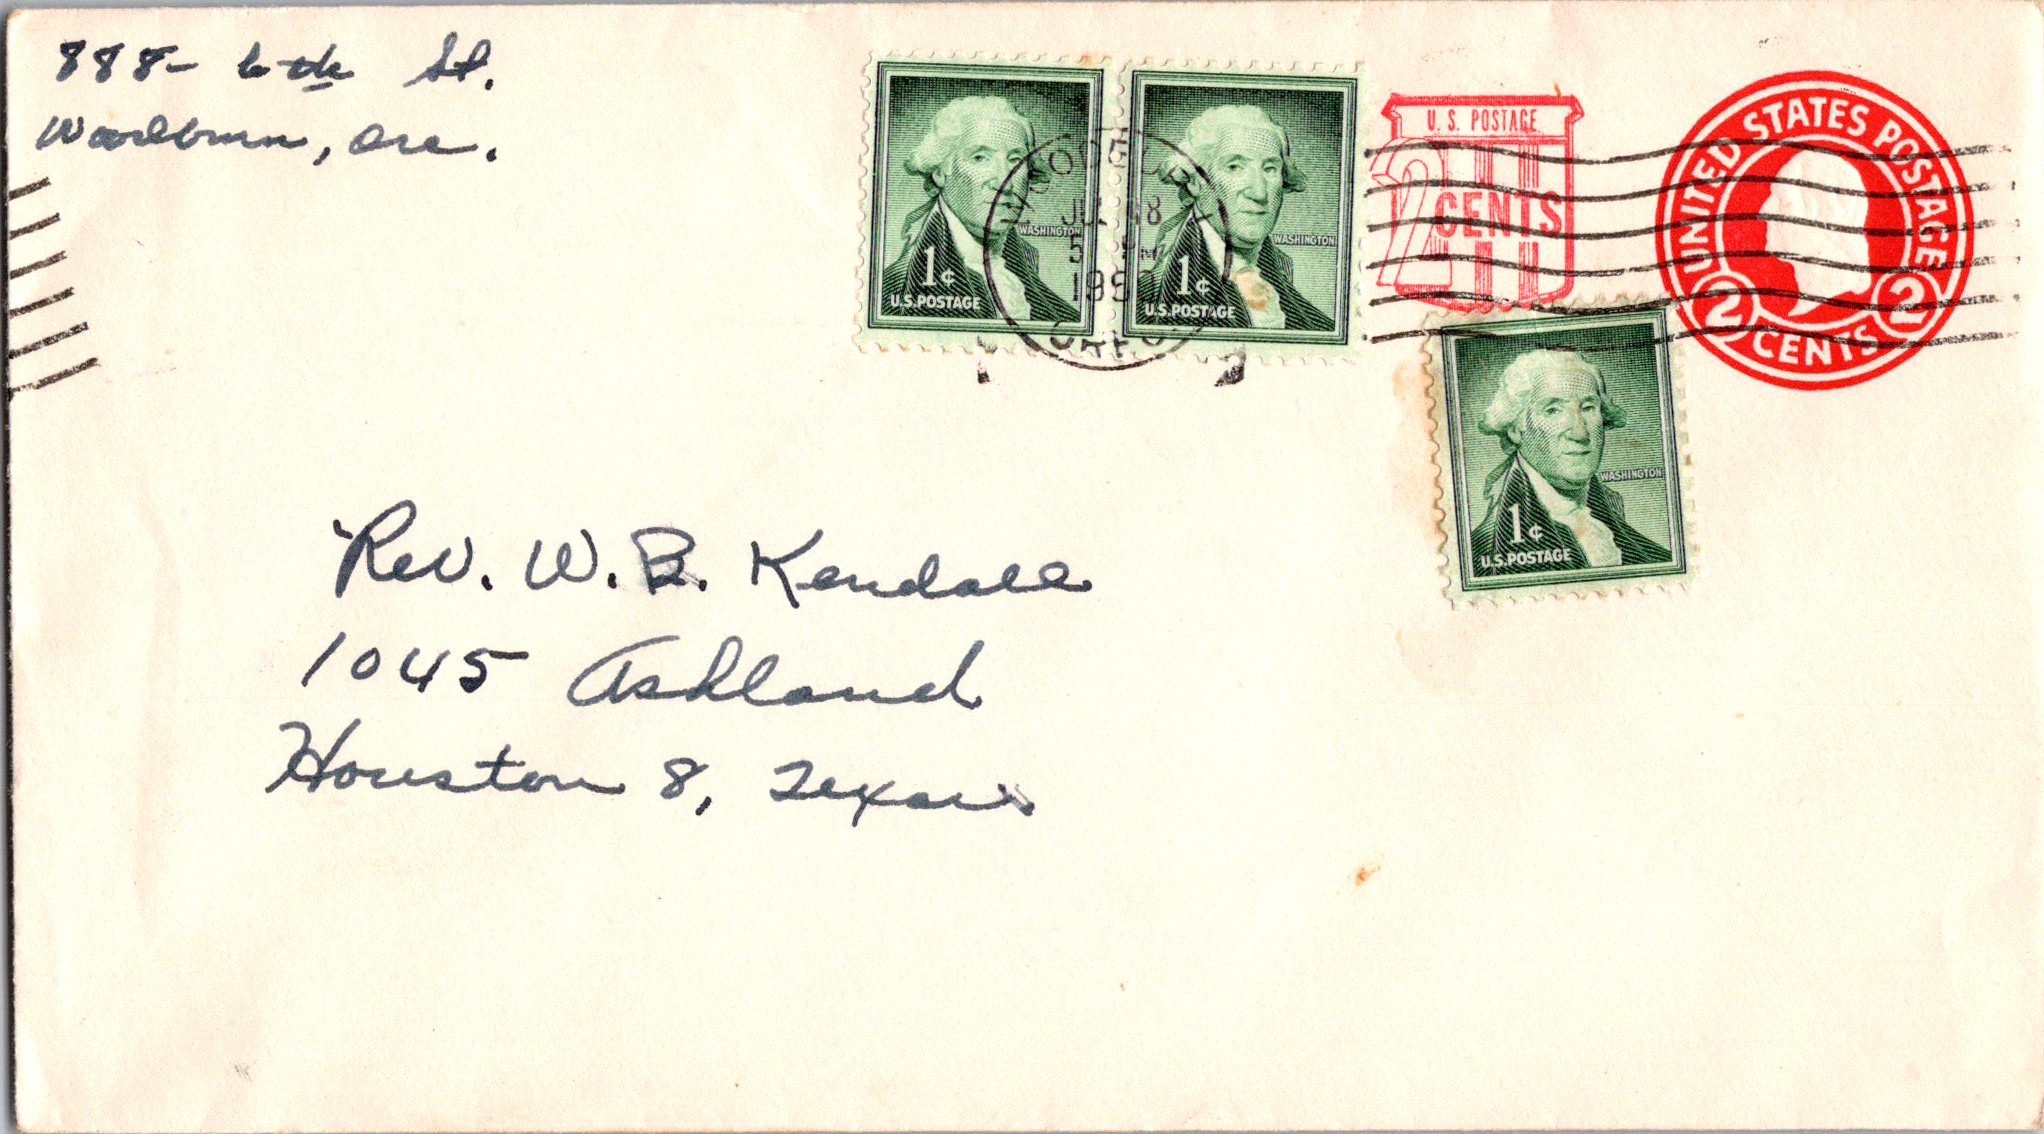 888- 6th St.
Woodburn, Ore.
WASHINGTON
1¢
U.S. POSTAGE
WASHINGTON
1¢
U.S. POSTAGE
5 PM
U. S. POSTAGE
2 CENTS
UNITED STATES POSTAGE
2 CENTS 2
WASHINGTON
1¢
U.S. POSTAGE
Rev. W. B. Kendall
1045 Ashland
Houston 8, Texas